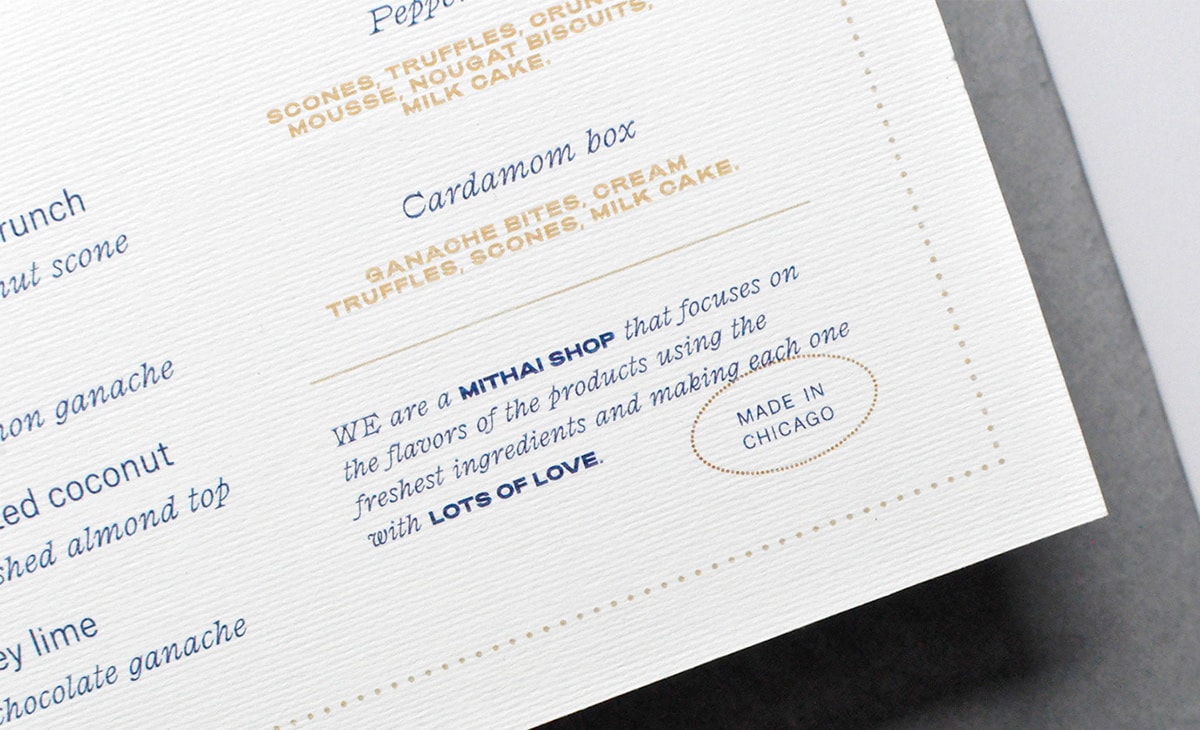 SCONES, TRUFFLES,
MOUSSE, NOUGAT BISCUITS,
MILK CAKE.
Cardamom box
GANACHE BITES, CREAM
TRUFFLES, SCONES, MILK CAKE.
scone
ganache
coconut
almond top
lime
chocolate ganache
WE are a MITHAI SHOP that focuses on
the flavors of the products using the
freshest ingredients and making each one
with LOTS OF LOVE.
MADE IN
CHICAGO